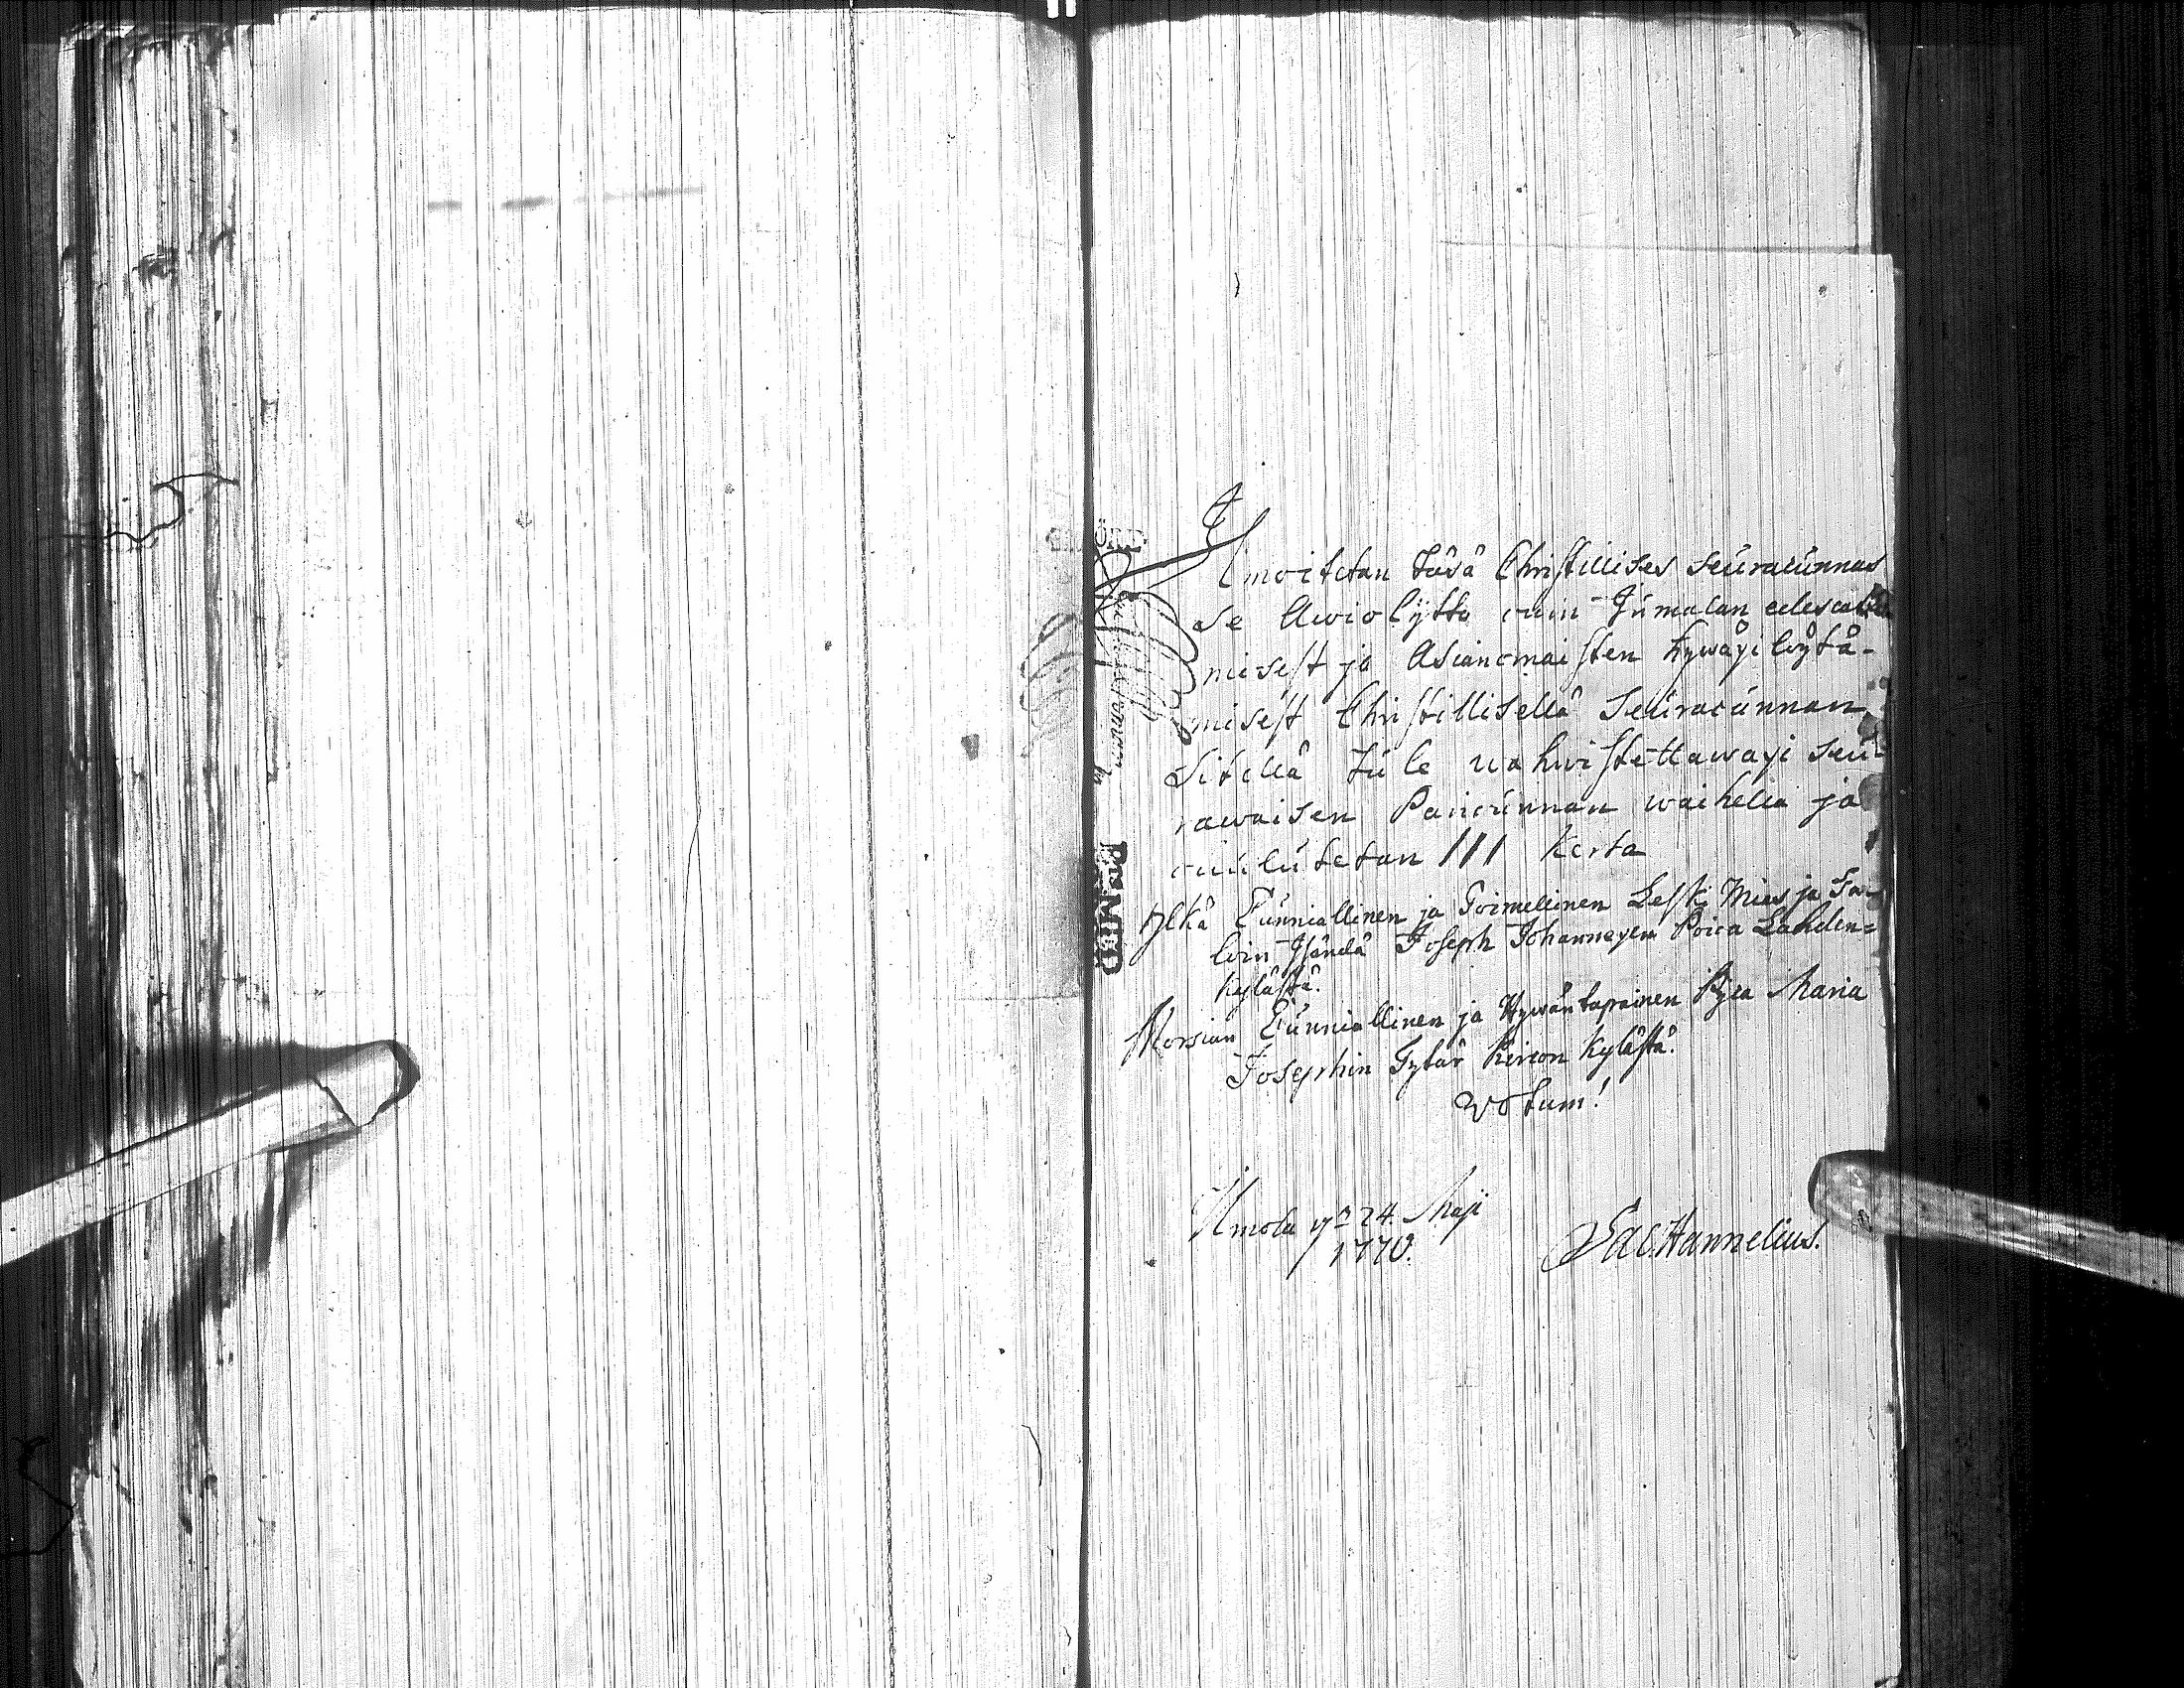 Ilmoitetan täsä Christillises Seuracunnas
se Awiolijtto cuin Jumalan edesca
misest ja Asianomaisten hywäxi löytä-
misest Christillisellä Seuracunnan
Sitellä tule wahwistettawaxi seu-
rawaisen Pariscunnan waihella ja
cuulutetan III Kerta
Ylkä Cunniallinen ja Toimellinen Leski Mies ja Ta-
loin Isändä Joseph Johannexen Poica Lahden=
kylästä.
Morsian Cunniallinen ja Hywäntapainen Pijca Maria
Josephin Tytär Kircon Kylästä.
Votum!
Ilmola 24. Maji
1770.
Jac. Hannelius.